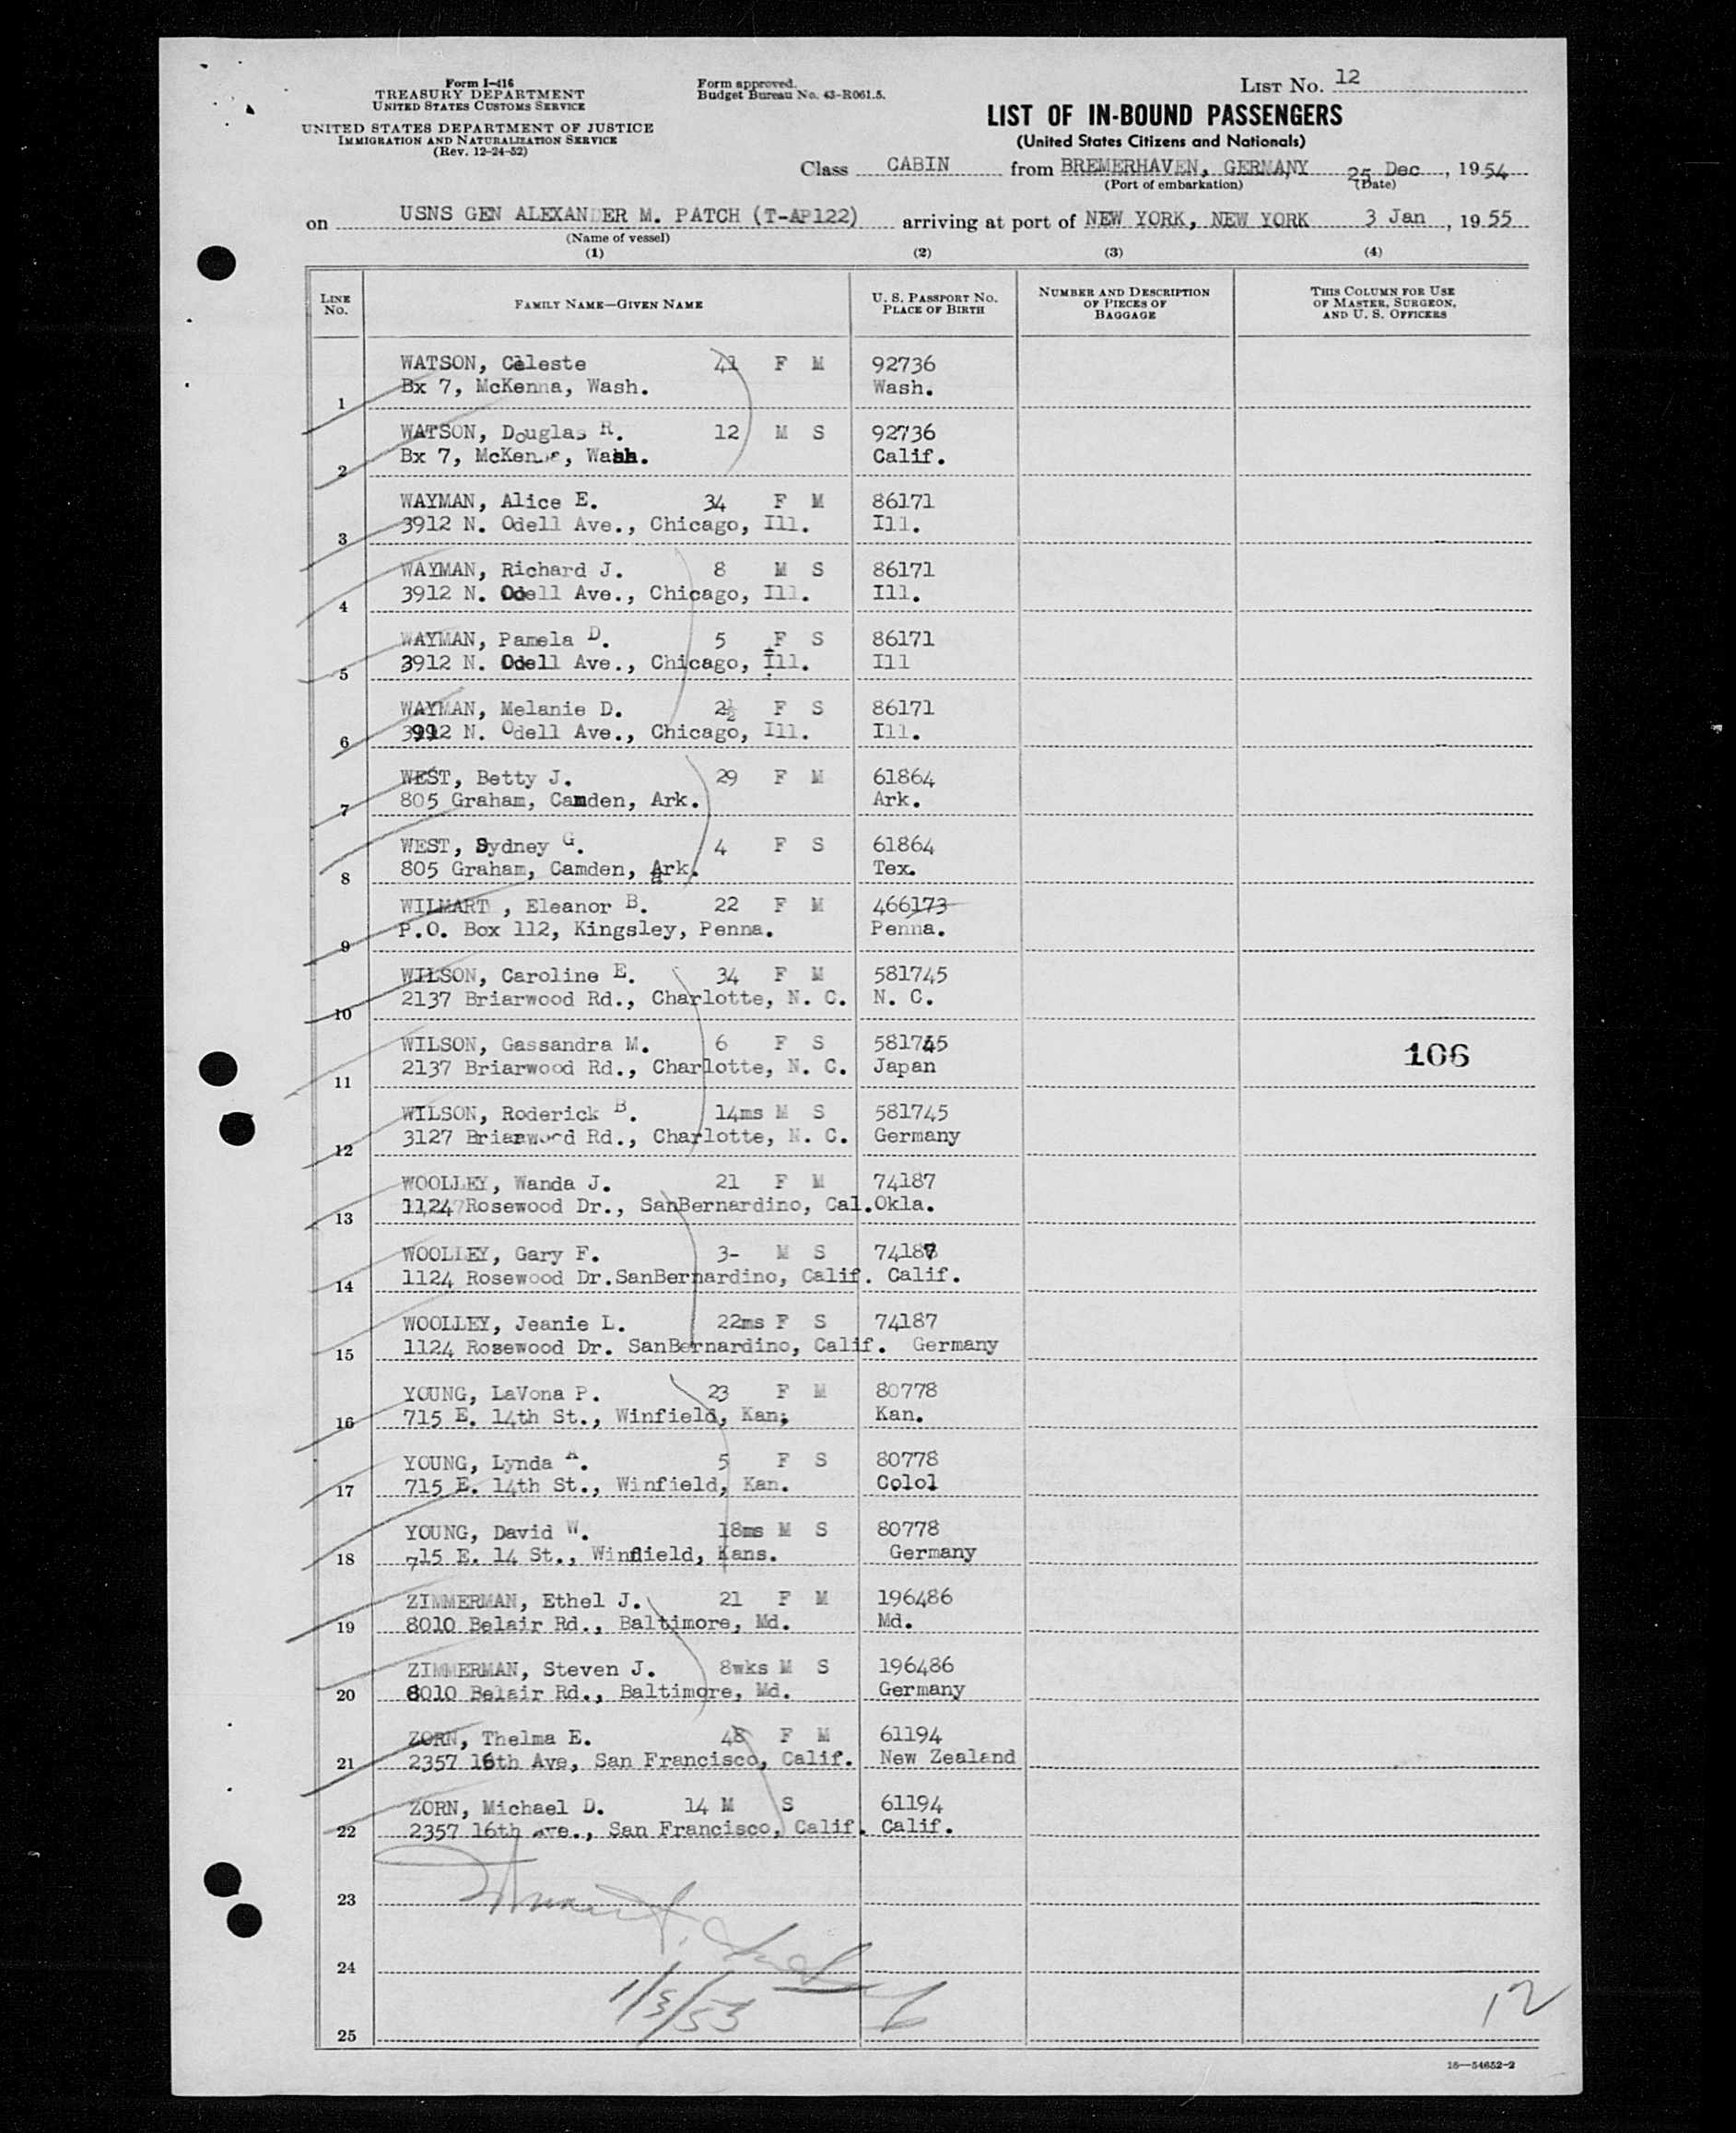 Form I-416
TREASURY DEPARTMENT
UNITED STATES CUSTOMS SERVICE
UNITED STATES DEPARTMENT OF JUSTICE
IMMIGRATION AND NATURALIZATION SERVICE
(Rev. 12-24-52)
Form approved.
Budget Bureau No. 43-R061.5.
LIST No. 12
LIST OF IN-BOUND PASSENGERS
(United States Citizens and Nationals)
Class CABIN from BREMERHAVEN, GERMANY 25 Dec, 1954
(Port of embarkation) (Date)
on USNS GEN ALEXANDER M. PATCH (T-AP122) arriving at port of NEW YORK, NEW YORK 3 Jan, 1955
(Name of vessel)
(1) (2) (3) (4)
LINE NO. FAMILY NAME—GIVEN NAME U. S. PASSPORT NO. PLACE OF BIRTH NUMBER AND DESCRIPTION OF PIECES OF BAGGAGE THIS COLUMN FOR USE OF MASTER, SURGEON, AND U. S. OFFICERS
WATSON, Celeste 41 F M 92736
1 Bx 7, McKenna, Wash. Wash.
WATSON, Douglas R. 12 M S 92736
2 Bx 7, McKenna, Wash. Calif.
WAYMAN, Alice E. 34 F M 86171
3 3912 N. Odell Ave., Chicago, Ill. Ill.
WAYMAN, Richard J. 8 M S 86171
4 3912 N. Odell Ave., Chicago, Ill. Ill.
WAYMAN, Pamela D. 5 F S 86171
5 3912 N. Odell Ave., Chicago, Ill. Ill
WAYMAN, Melanie D. 2½ F S 86171
6 3912 N. Odell Ave., Chicago, Ill. Ill.
WEST, Betty J. 29 F M 61864
7 805 Graham, Camden, Ark. Ark.
WEST, Sydney G. 4 F S 61864
8 805 Graham, Camden, Ark. Tex.
WILMART, Eleanor B. 22 F M 466173
9 P.O. Box 112, Kingsley, Penna. Penna.
WILSON, Caroline E. 34 F M 581745
10 2137 Briarwood Rd., Charlotte, N. C. N. C.
WILSON, Gassandra M. 6 F S 581745
11 2137 Briarwood Rd., Charlotte, N. C. Japan 106
WILSON, Roderick B. 14ms M S 581745
12 3127 Briarwood Rd., Charlotte, N. C. Germany
WOOLLEY, Wanda J. 21 F M 74187
13 1124 Rosewood Dr., SanBernardino, Cal. Okla.
WOOLLEY, Gary F. 3- M S 74187
14 1124 Rosewood Dr.SanBernardino, Calif. Calif.
WOOLLEY, Jeanie L. 22ms F S 74187
15 1124 Rosewood Dr. SanBernardino, Calif. Germany
YOUNG, LaVona P. 23 F M 80778
16 715 E. 14th St., Winfield, Kan. Kan.
YOUNG, Lynda A. 5 F S 80778
17 715 E. 14th St., Winfield, Kan. Colol
YOUNG, David W. 18ms M S 80778
18 715 E. 14 St., Winfield, Kans. Germany
ZIMMERMAN, Ethel J. 21 F M 196486
19 8010 Belair Rd., Baltimore, Md. Md.
ZIMMERMAN, Steven J. 8wks M S 196486
20 8010 Belair Rd., Baltimore, Md. Germany
ZORN, Thelma E. 48 F M 61194
21 2357 16th Ave, San Francisco, Calif. New Zealand
ZORN, Michael D. 14 M S 61194
22 2357 16th Ave., San Francisco, Calif. Calif.
23
24
1/3/55
12
25
16—54652-2